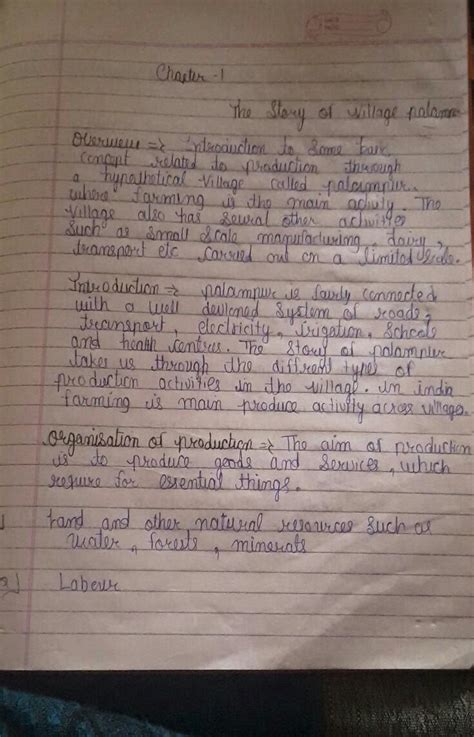 Chapter -1
The Story of village palam
Overview => introduction to Some basic
concept related to production through
a hypothetical village called palampur.
where farming is the main activity The
village also has several other activities
Such as Small Scale manufacturing, dairy,
transport etc carried out on a limited Scale.
Introduction => palampur is fairly connected
with a well devloned System of roads,
transport, electricity, irigation, Schools
and health centres. The Story of palampur
takes us through the diffrent types of
production activities in the village. in india
farming is main produce activity across villages.
organisation of production => The aim of production
is to produce goods and Services, which
require for essential things.
Land and other natural resources Such as
water, forests, minerals
2) Labour